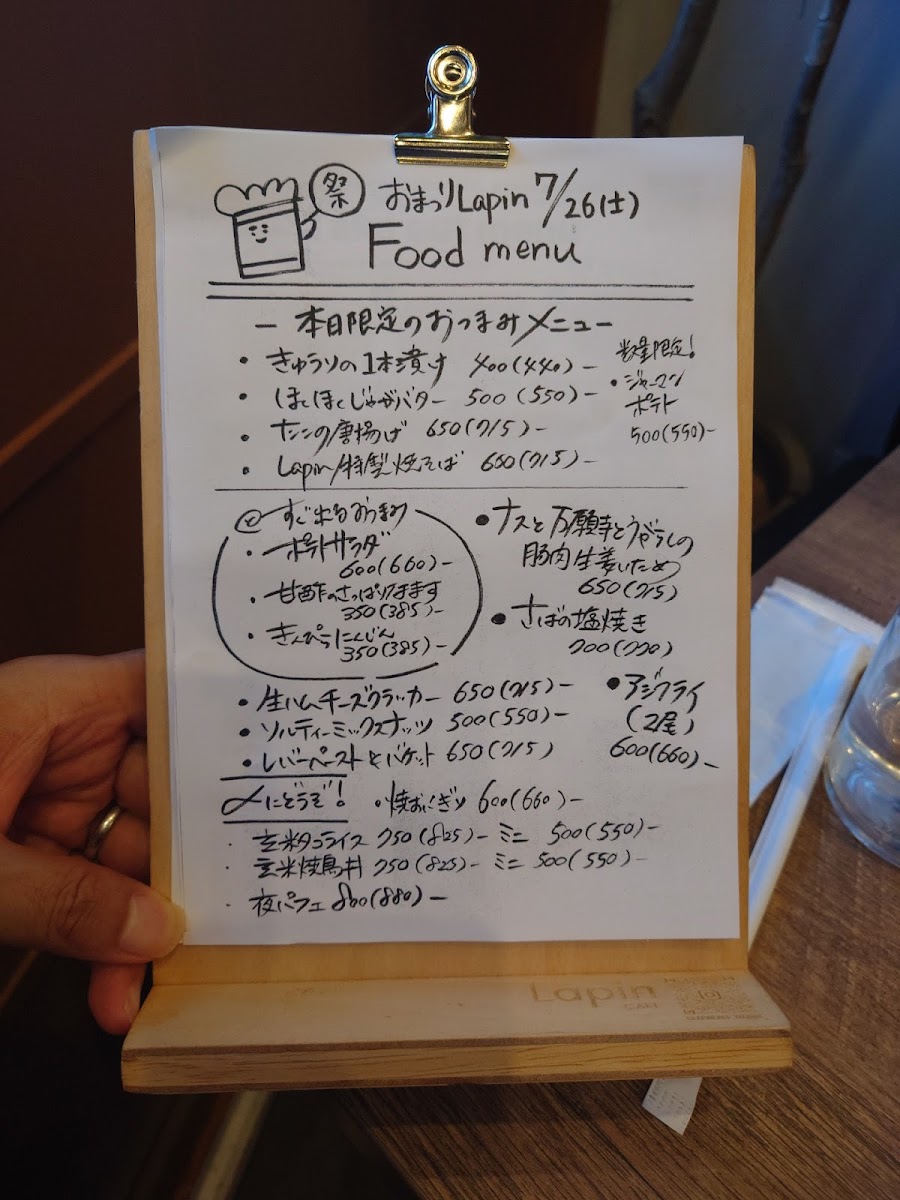 祭
おまつりLapin 7/26(土)
Food menu
ー本日限定のおつまみメニューー
・きゅうりの1本漬け 400(440)ー
・ほくほくじゃがバター 500(550)ー
・たこの唐揚げ 650(715)ー
・Lapin特製焼そば 650(715)ー
数量限定!
・ジャーマン
ポテト
500(550)ー
すぐ出るおつまみ
・ポテトサラダ
600(660)ー
・甘酢のさっぱり
350(385)ー
・きんぴらにんじん
350(385)ー
●ナスと万願寺とうがらしの
豚肉生姜いため
650(715)
●さばの塩焼き
700(770)
・生ハムチーズクラッカー 650(715)ー
・ソルティーミックスナッツ 500(550)ー
・レバーペーストとバケット 650(715)
●アジフライ
(2尾)
600(660)ー
〆にどうぞ!
・焼おにぎり 600(660)ー
・玄米タコライス 750(825)ー ミニ 500(550)ー
・玄米焼鳥丼 750(825)ー ミニ 500(550)ー
・夜パフェ 800(880)ー
Lapin
CAFE